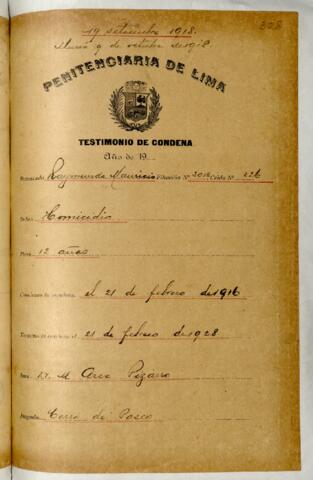 19 setiembre 1918.
9 de octubre de 1918.
PENITENCIARIA DE LIMA
TESTIMONIO DE CONDENA
Año de 19
Rematado Raymundo Mauricio Filiación Nº Celda Nº 226
Delito Homicidio
Pena 12 años
Comienza la condena el 21 de febrero de 1916
Termina la condena el 21 de febrero de 1928
Juez Dr. M Arce Pizarro
Juzgado Cerro de Pasco